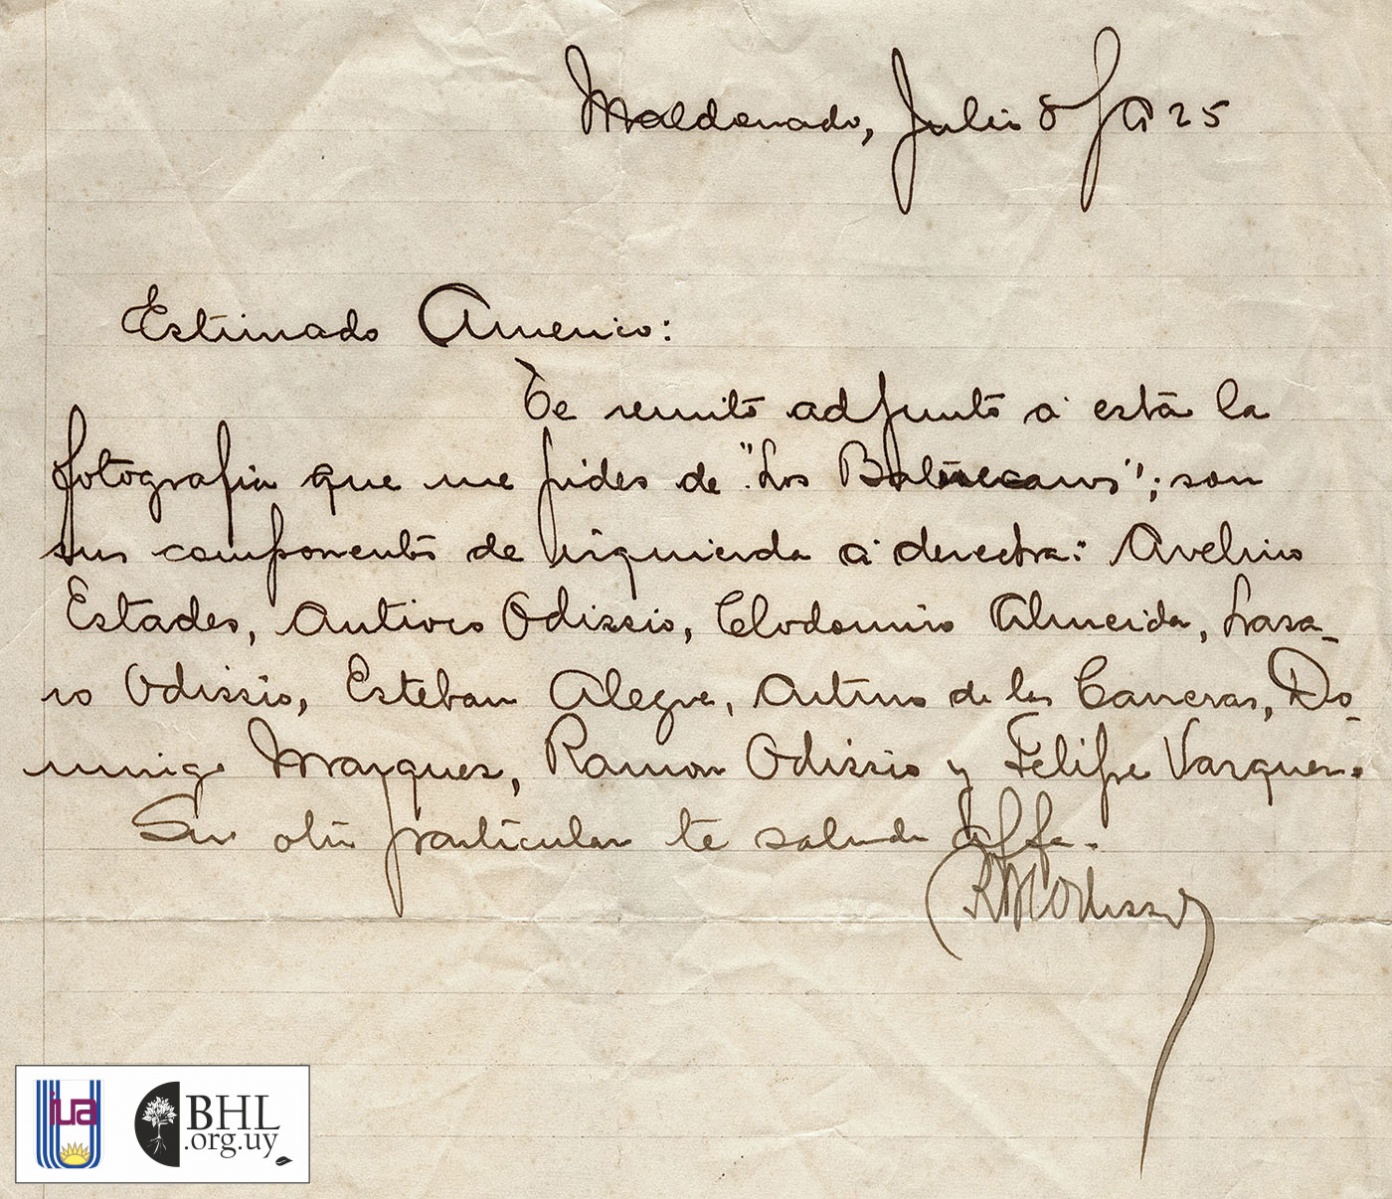 Maldonado, Julio 8/925
Estimado Americo:
Te remito adjunto a esta la
fotografia que me pides de "Los
son
sus componentes de izquierda a derecha: Avelino
Estades, Antioco Odissio, Clodomiro Almeida, Lasa-
ro Odissio, Esteban Alegre, Arturo de las Carreras, Do-
mingo Marquez, Ramon Odissio y Felipe Vazquez.
Sin otro particular te saluda affo.
R M Odissio
iua
BHL
.org.uy